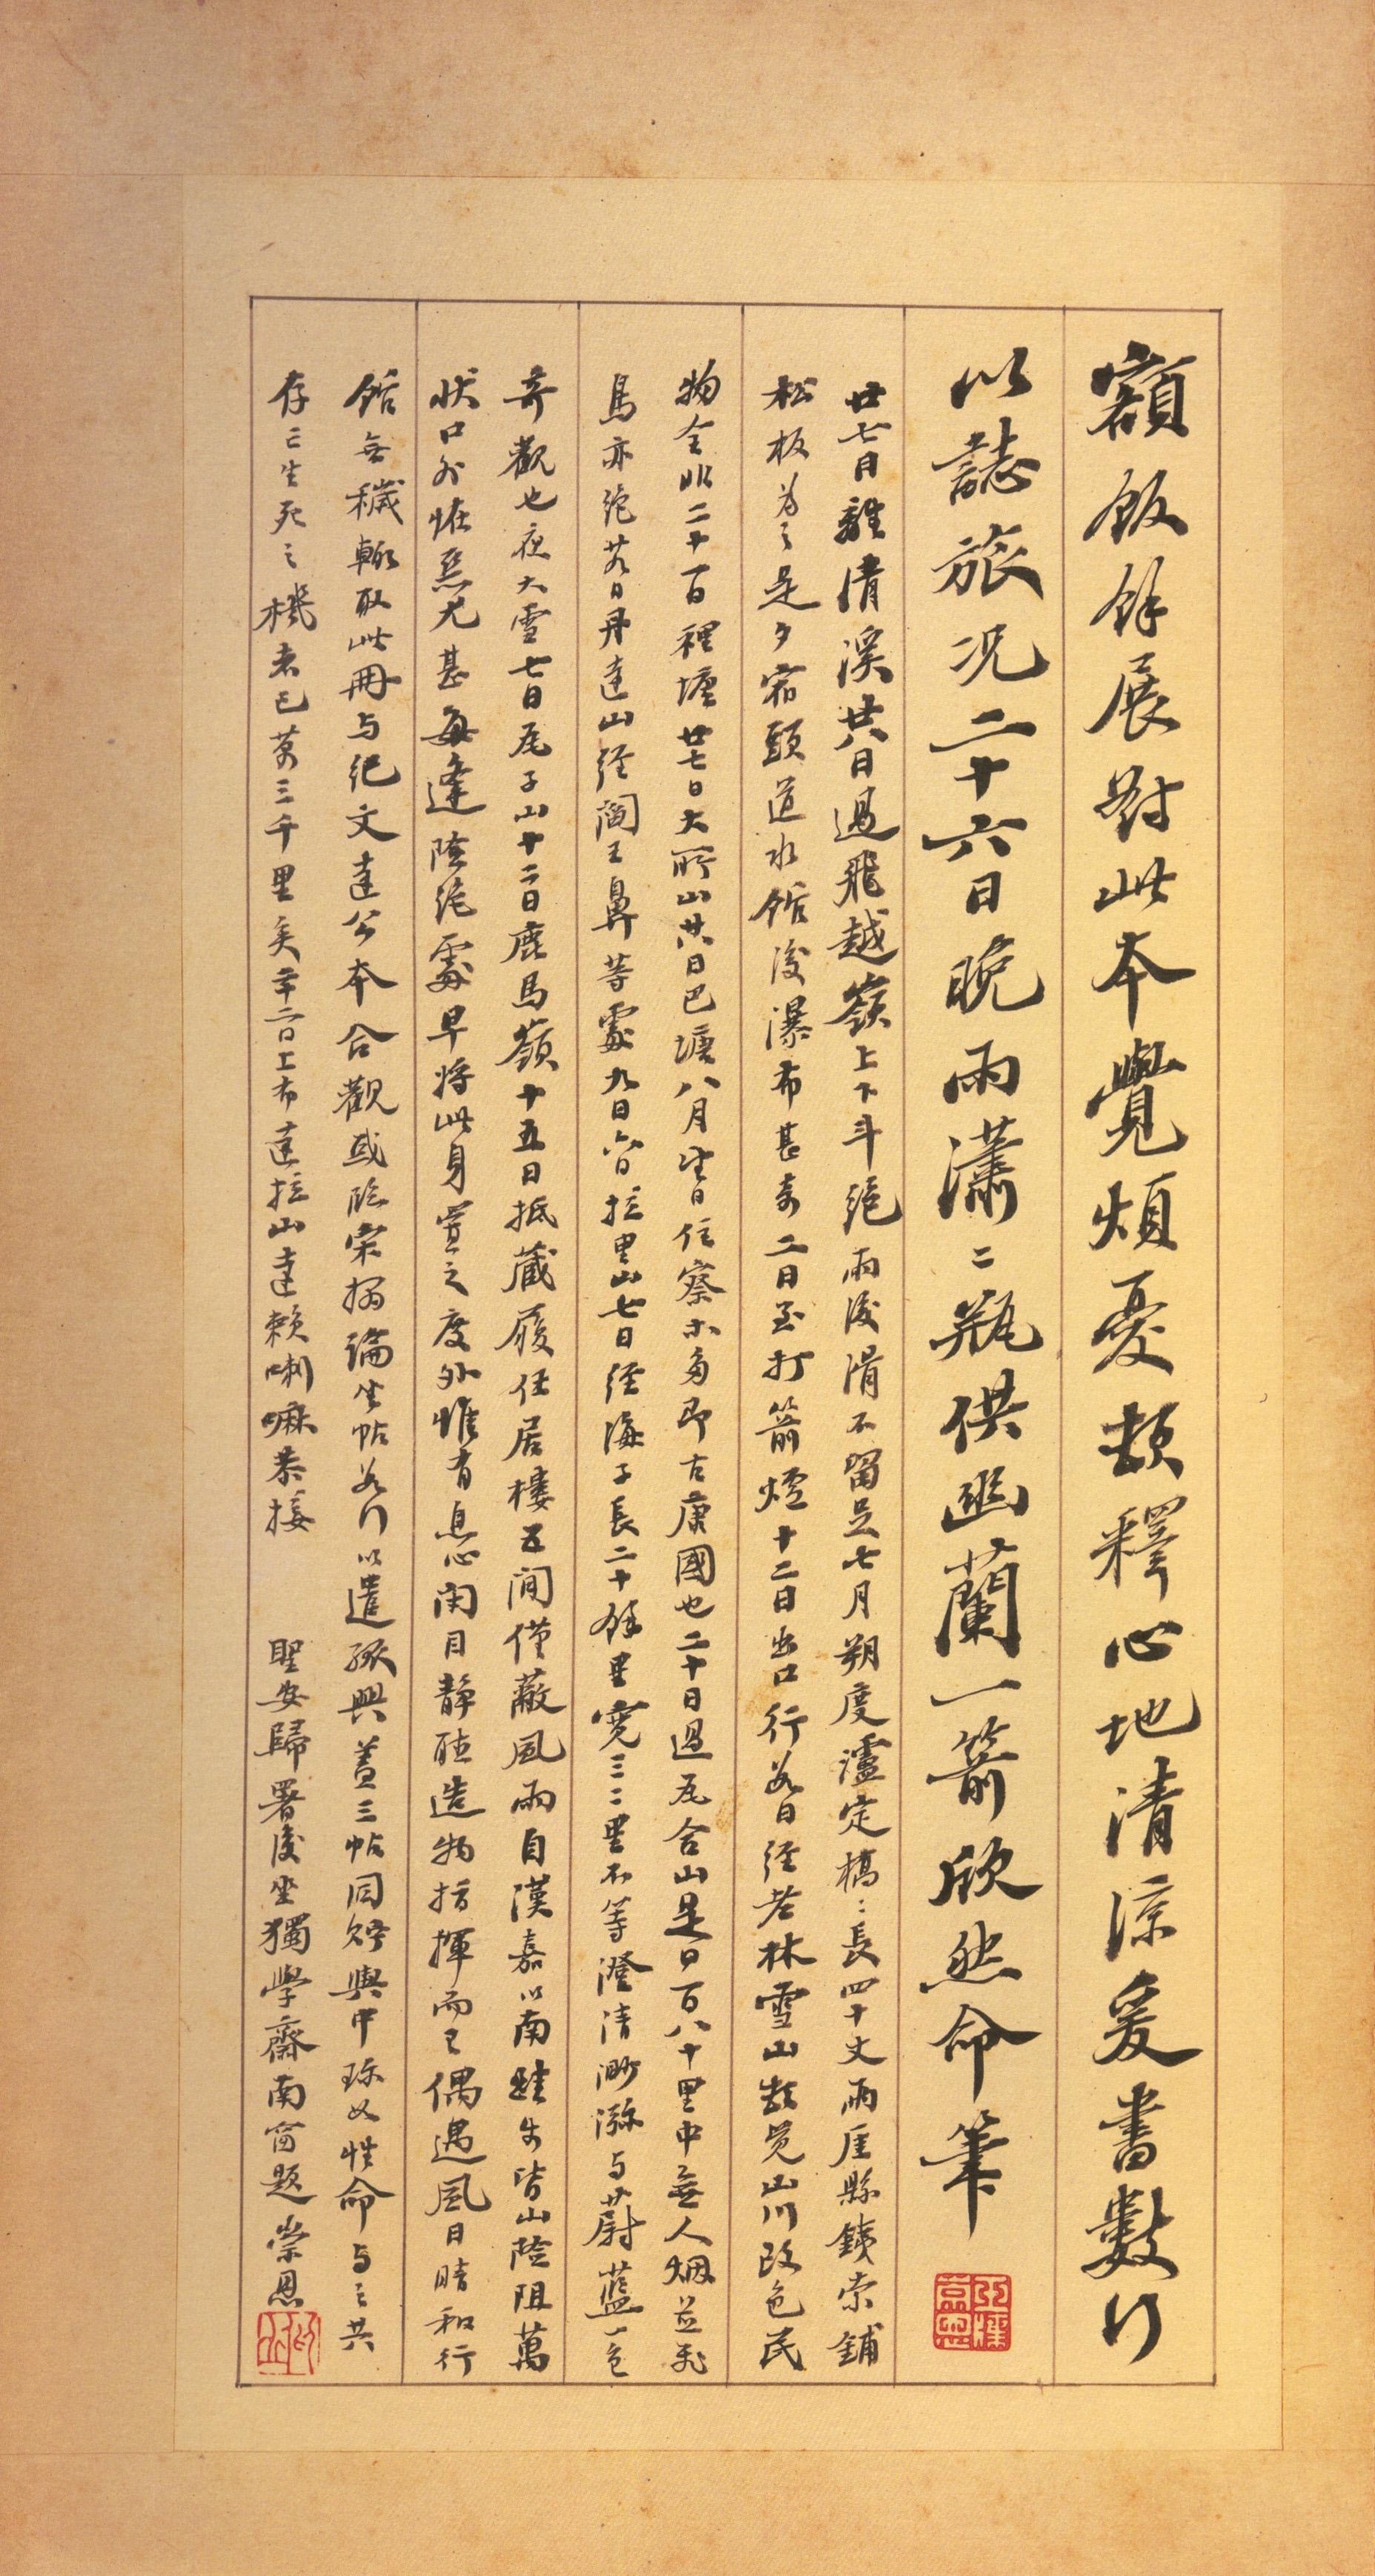 額飯餘展對此本覺煩憂頓釋心地清涼爰書數行
以誌旅況二十六日晚雨瀟二瓶供幽蘭一箭欣然命筆
廿七日離清溪廿八日過飛越嶺上下斗絕雨後滑不留足七月朔度瀘定橋：長四十丈兩厓縣鐵索鋪
松板為之是夕宿頭道水館後瀑布甚奇二日至打箭爐十二日出口行數日經老林雪山頓覺山川改色民
物全非二十一日裡塘廿七日大所山廿八日巴塘八月望日住察木多即古康國也二十日過瓦合山是日百八十里中無人烟並飛
鳥亦絕數日丹達山經閻王鼻等處九月六日拉里山七日經海子長二十餘里寬三二里不等澄清渺瀰与蔚藍一色
奇觀也夜大雪七日瓦子山十二日鹿馬嶺十五日抵藏履任居樓五間僅蔽風雨自漢嘉以南駐步皆山險阻萬
狀口外怪惡尤甚每逢險絕處早將此身置之度外惟有息心閉目靜聽造物指揮而已偶遇風日晴和行
館無穢輒取此冊与紀文達公本合觀或臨宋搨論坐帖數行以遣孤興蓋三帖同貯輿中珍如性命与之共
存亡生死之機者已萬三千里矣二日上布達拉山達賴喇嘛恭接 聖安歸署後坐獨學齋南窗題 崇恩